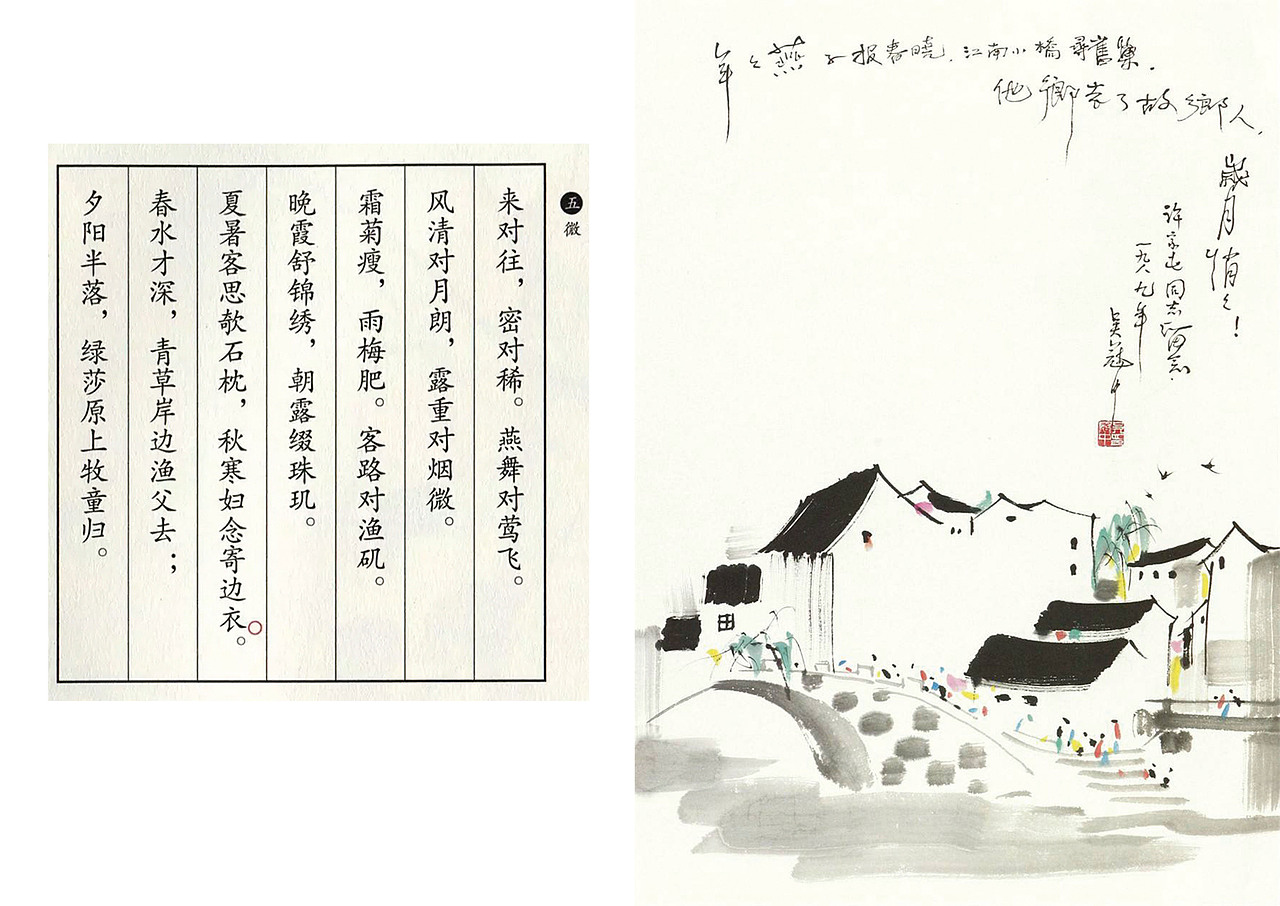 五 微
来对往，密对稀。燕舞对莺飞。
风清对月朗，露重对烟微。
霜菊瘦，雨梅肥。客路对渔矶。
晚霞舒锦绣，朝露缀珠玑。
夏暑客思欹石枕，秋寒妇念寄边衣。
春水才深，青草岸边渔父去；
夕阳半落，绿莎原上牧童归。
年々燕子报春曉．江南小橋尋舊巢．
他鄉老了故鄉人，
歲月悄々！
许家屯同志留念．
一九八九年
吴冠中